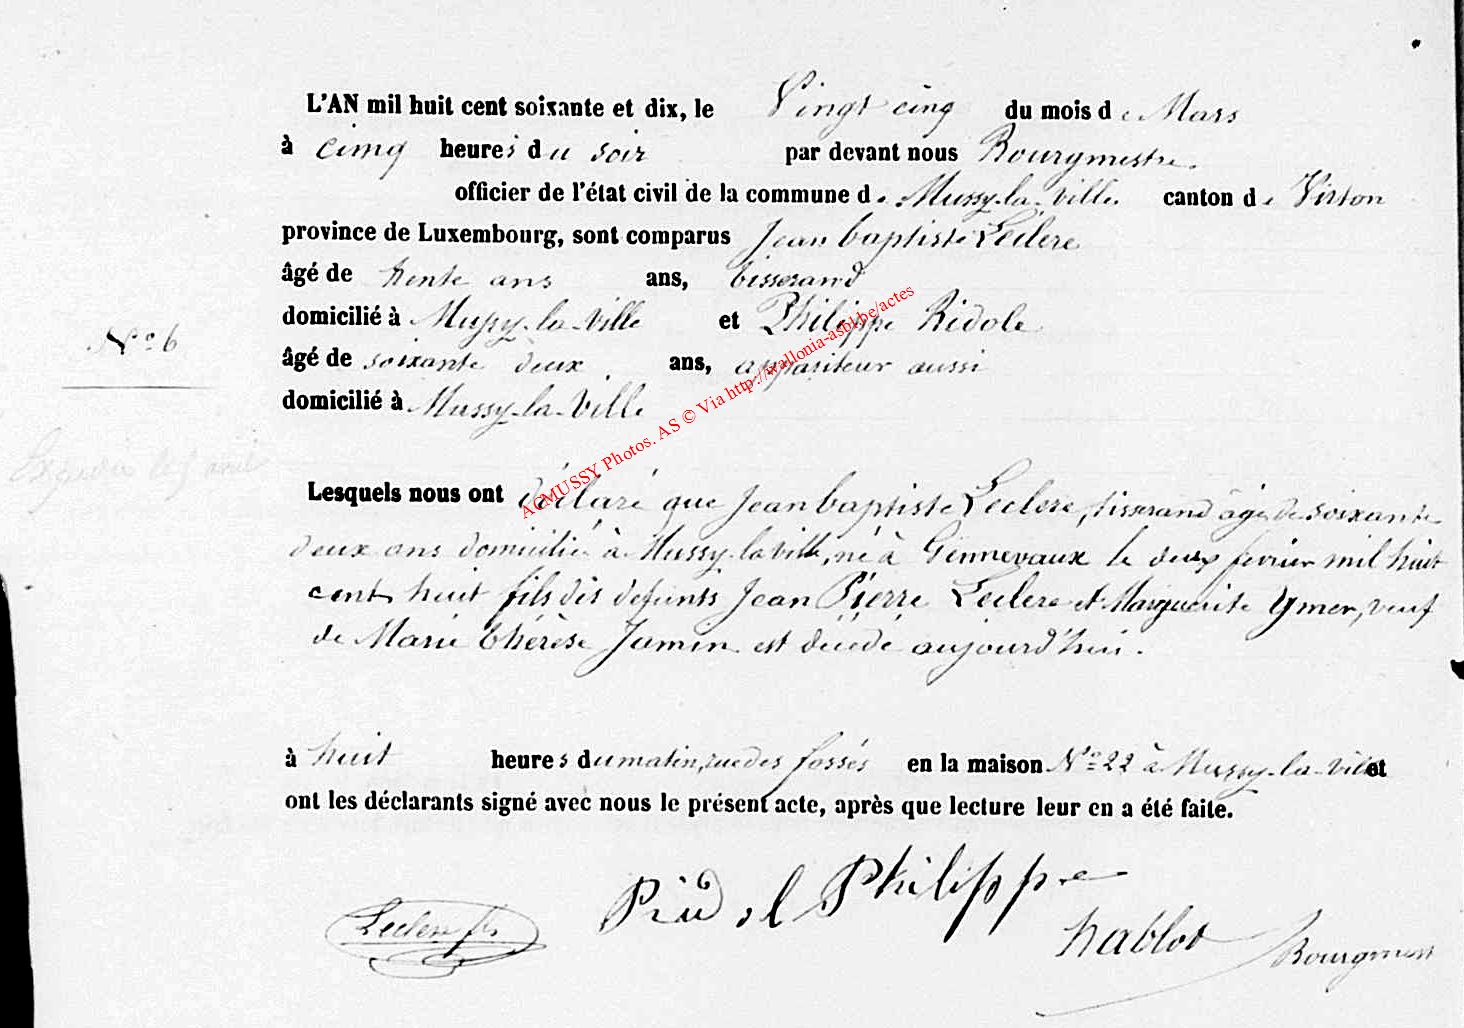 L'AN mil huit cent soixante et dix, le Vingt cinq du mois de Mars
à cinq heures du soir par devant nous Bourgmestre
officier de l'état civil de la commune de Mussy-la-Ville canton de Virton
province de Luxembourg, sont comparus Jean baptiste Leclere
âgé de trente ans ans, tisserand
domicilié à Mussy-la-Ville et Philippe Ridole
N° 6
âgé de soixante deux ans, appariteur aussi
domicilié à Mussy-la-Ville
ACMUSSY Photos. AS © Via http://wallonia-asbl.be/actes
Lesquels nous ont déclaré que Jean baptiste Leclere, tisserand âgé de soixante
deux ans domicilié à Mussy-la ville, né à Gennevaux le deux fevrier mil huit
cent huit fils des defunts Jean Pierre Leclere et Marguerite Ymer, veuf
de Marie thérèse Jamin est décédé aujourd'hui.
à huit heures du matin, rue des fossés en la maison N° 22 à Mussy-la-Ville et
ont les déclarants signé avec nous le présent acte, après que lecture leur en a été faite.
Leclere fils Philippe
hablot Bourgmest